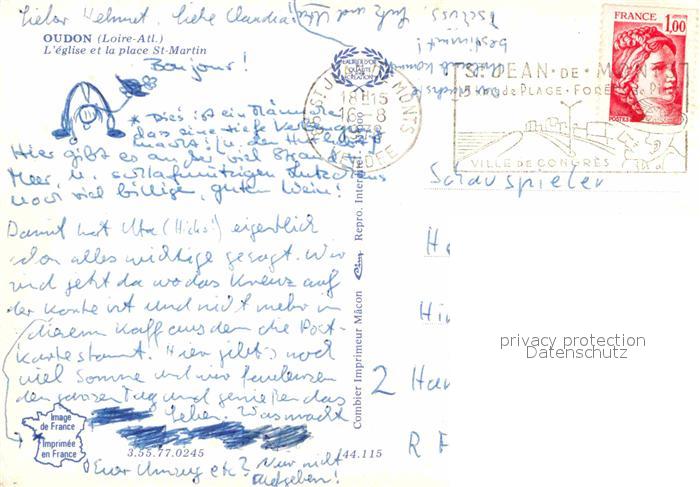 Lieber Helmut, liebe Claudia!
OUDON (Loire-Atl.)
L'église et la place St-Martin
Bonjour!
* Dies ist ein Männchen
das eine tiefe Verbeugung
macht! u. den Hut
Hier gibt es außer viel Strand,
Meer, u. schlafmützigen
noch viel billigen, guten Wein!
Damit hat Uta (Hicks!) eigentlich
schon alles wichtige gesagt. Wir
sind jetzt da wo das Kreuz auf
der Karte ist und nicht mehr in
diesem Kaff aus dem die Post-
karte stammt. Hier gibt's noch
viel Sonne und wir faulenzen
den ganzen Tag und genießen das
Leben. Was macht
Euer Umzug etc? Nur nicht
aufgeben!
Image
de France
Imprimée
en France
3.55.77.0245
44.115
Combier Imprimeur Mâcon Cim Repro. Interdite
Tschüss. Lutz und Uta
bestimmt!
18H15
16-8
VENDÉE
ST JEAN-DE-MONTS
VILLE DE CONGRÈS
FRANCE
1,00
POSTES
Schauspieler
2
privacy protection
Datenschutz